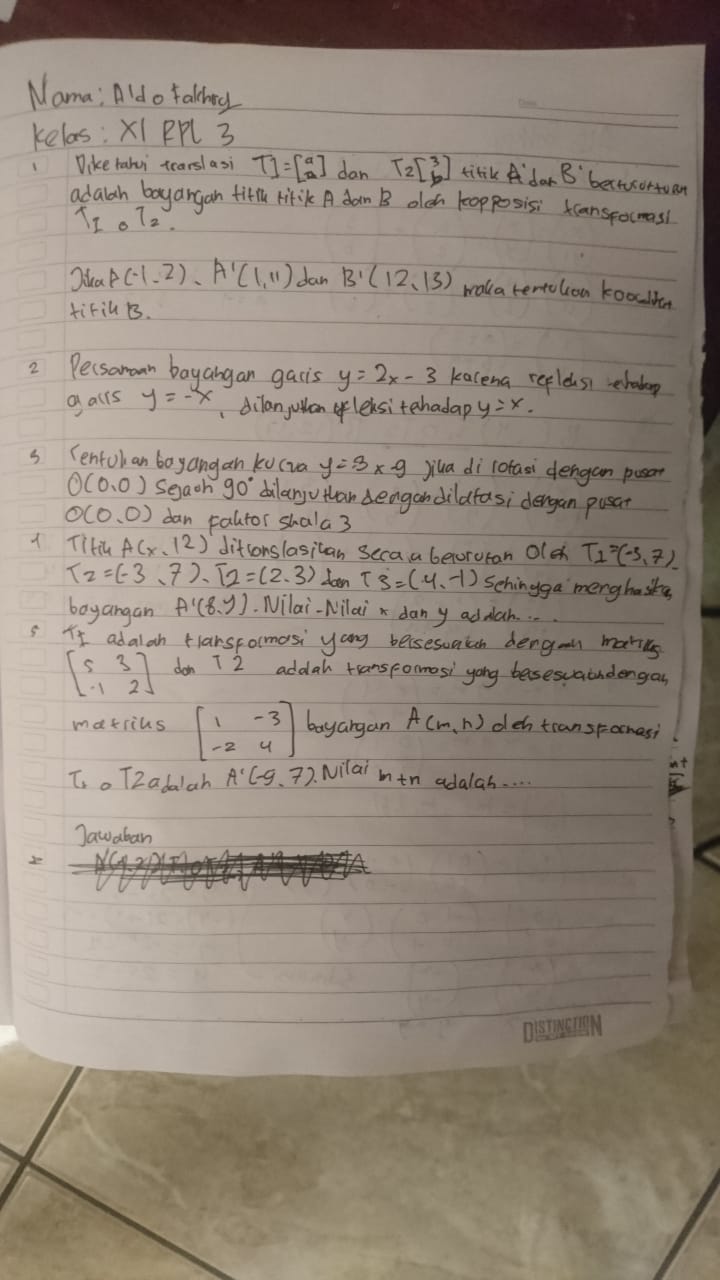 Nama: Aldo Fakhry
Kelas: XI RPL 3
1 Diketahui translasi T1=[a a] dan T2[3 b] titik A' dan B' berturuturan
adalah bayangan titik titik A dan B oleh kopposisi transformasi
T1 o T2.
Jika A(-1.2), A'(1,11) dan B'(12,13) maka tentukan
titik B.
2 Persamaan bayangan garis y=2x-3 karena refleksi
garis y=-x, dilanjutkan tehadap y=x.
3 Tentukan bayangan kurva y=3x9 jika di rotasi dengan pusat
O(0.0) Sejaoh 90° dilanjutkan dengan dilatasi dengan pusat
O(0.0) dan faktor skala 3
4 Titik A(x.12) ditranslasikan secara berurutan Oleh T1=(-3,7)
T2=(-3,7), T2=(2.3) dan T3=(4,-1) Sehingga menghasilka
bayangan A'(8,y). Nilai-Nilai x dan y adalah....
5 T1 adalah transformasi yang bersesuaian dengan matriks
[5 3
-1 2] dan T2 addah transformasi yang
matriks [1 -3
-2 4] bayangan A(m,n) oleh transformasi
T1 o T2 adalah A'(-9.7). Nilai m+n adalah....
Jawaban
DISTINCTION